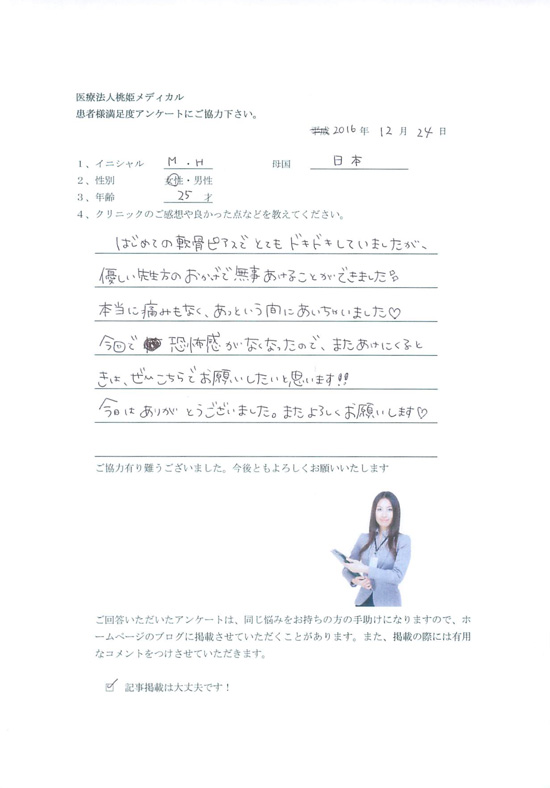 医療法人桃姫メディカル
患者様満足度アンケートにご協力下さい。
平成 2016 年 12 月 24 日
1、イニシャル M・H 母国 日本
2、性別 女性・男性
3、年齢 25 才
4、クリニックのご感想や良かった点などを教えてください。
はじめての軟骨ピアスでとてもドキドキしていましたが、
優しい先生方のおかげで無事あけることができました
本当に痛みもなく、あっという間にあいちゃいました♡
今回で 恐怖感がなくなったので、またあけにくると
きは、ぜひこちらでお願いしたいと思います!!
今日はありがとうございました。またよろしくお願いします♡
ご協力有り難うございました。今後ともよろしくお願いいたします
ご回答いただいたアンケートは、同じ悩みをお持ちの方の手助けになりますので、ホ
ームページのブログに掲載させていただくことがあります。また、掲載の際には有用
なコメントをつけさせていただきます。
☑ 記事掲載は大丈夫です！